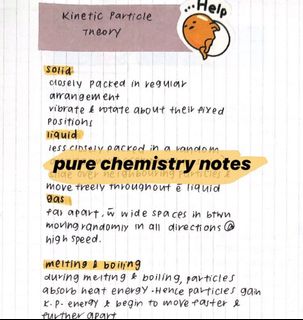 ...Help
Kinetic Particle
Theory
solid
closely packed in regular
arrangement
vibrate & rotate about their fixed
positions
liquid
less closely packed in a random
pure chemistry notes
slide over neighbouring particles &
move freely throughout ē liquid
gas
far apart, w̄ wide spaces in btwn
moving randomly in all directions @
high speed.
melting & boiling
during melting & boiling, particles
absorb heat energy. Hence particles gain
K.P. energy & begin to move faster &
further apart